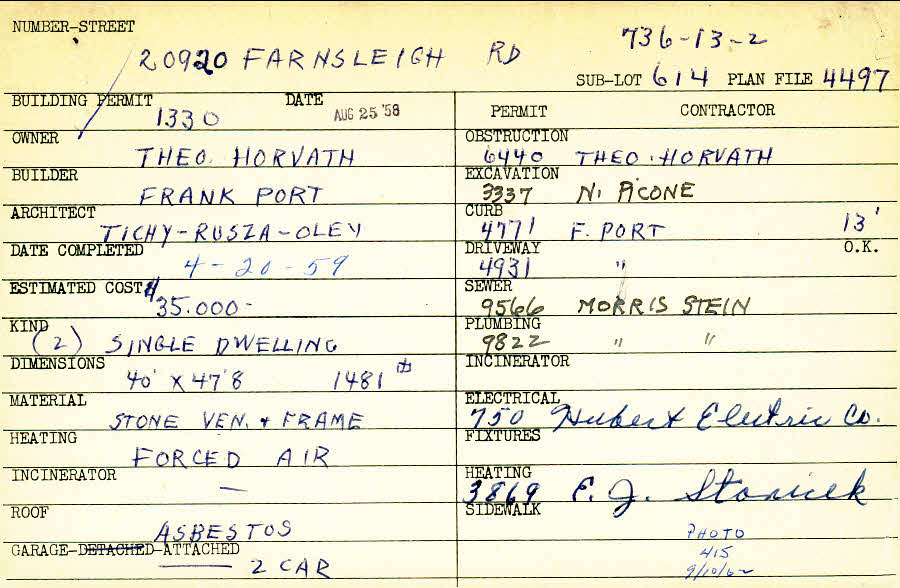 NUMBER-STREET
20920 FARNSLEIGH RD
736-13-2
SUB-LOT 614 PLAN FILE 4497
BUILDING PERMIT DATE
1330 AUG 25 '58
OWNER
THEO. HORVATH
BUILDER
FRANK PORT
ARCHITECT
TICHY-RUSZA-OLEY
DATE COMPLETED
4-20-59
ESTIMATED COST $
35.000-
KIND
(2) SINGLE DWELLING
DIMENSIONS
40' X 47'8 1481
MATERIAL
STONE VEN. + FRAME
HEATING
FORCED AIR
INCINERATOR
—
ROOF
ASBESTOS
GARAGE-DETACHED-ATTACHED
2 CAR
PERMIT CONTRACTOR
OBSTRUCTION
6440 THEO. HORVATH
EXCAVATION
3337 N. PICONE
CURB
4771 F. PORT 13'
DRIVEWAY O.K.
4931 "
SEWER
9566 MORRIS STEIN
PLUMBING
9822 " "
INCINERATOR
ELECTRICAL
750 Hubert Electric Co.
FIXTURES
HEATING
3869 F. J. 
SIDEWALK
PHOTO
415
9/10/62